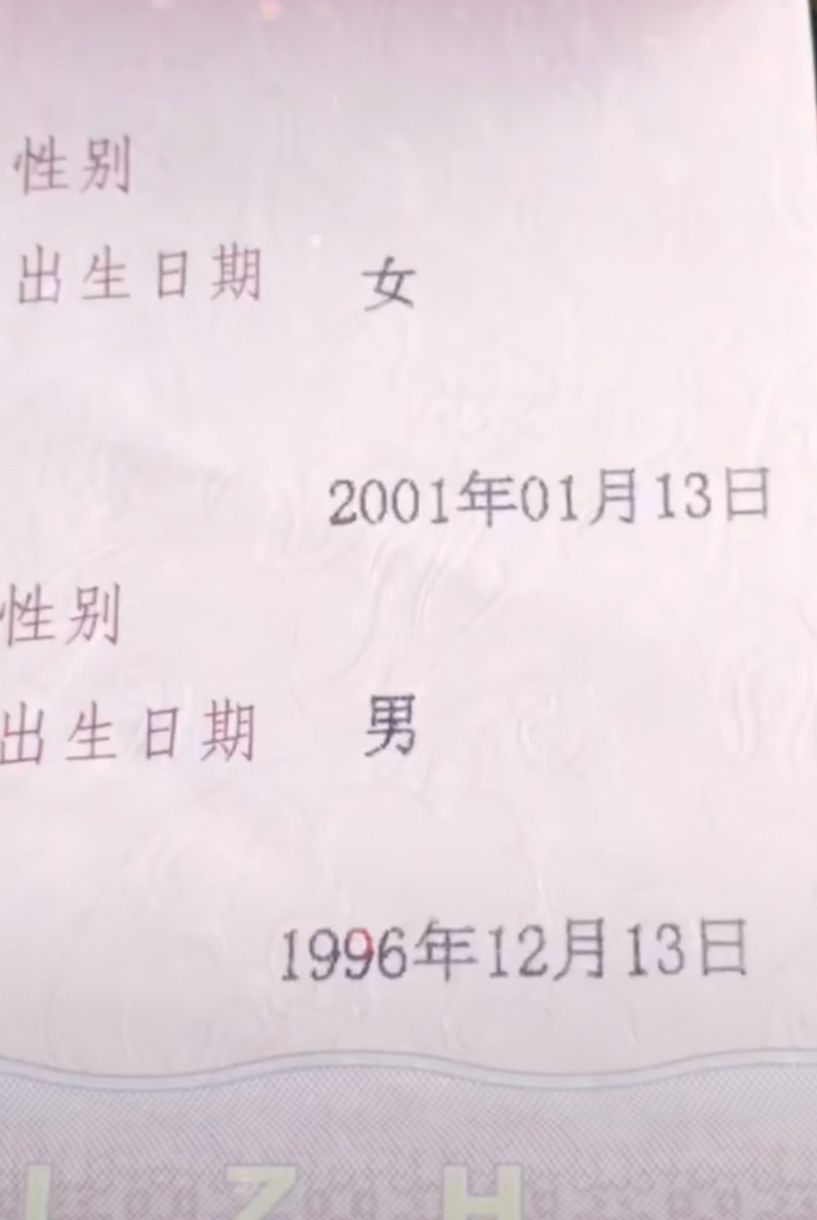 性别
出生日期 女
2001年01月13日
性别
出生日期 男
1996年12月13日
I Z H